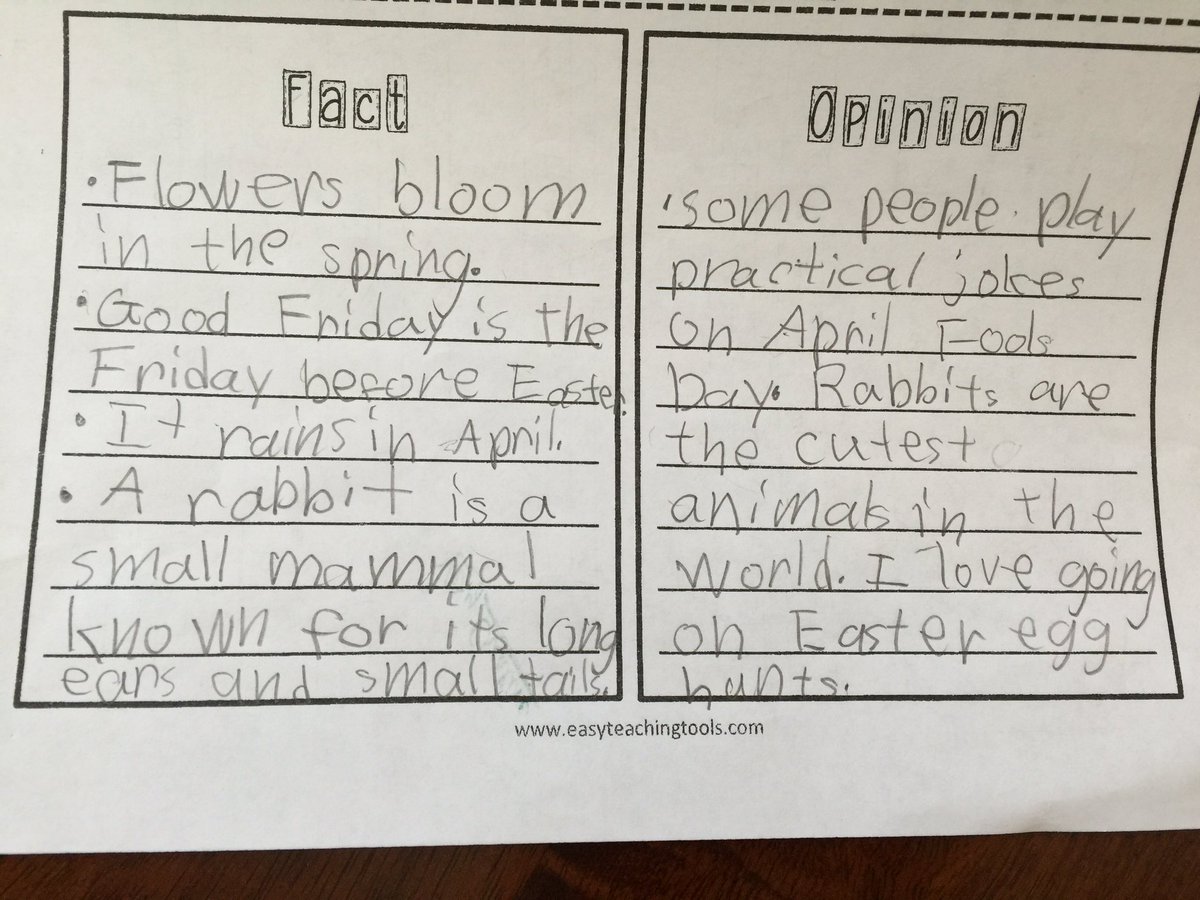 Fact
• Flowers bloom
in the spring.
• Good Friday is the
Friday before Easter.
• It rains in April.
• A rabbit is a
small mammal
known for its long
ears and small tails.
Opinion
• some people play
practical jokes
on April Fools
Day. Rabbits are
the cutest
animals in the
world. I love going
on Easter egg
hunts.
www.easyteachingtools.com